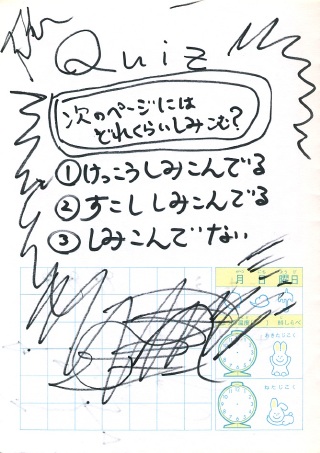 Quiz
次のページには
どれくらいしみこむ?
①けっこうしみこんでる
②すこししみこんでる
③しみこんでない
月 日 曜日
おきたじこく
ねたじこく